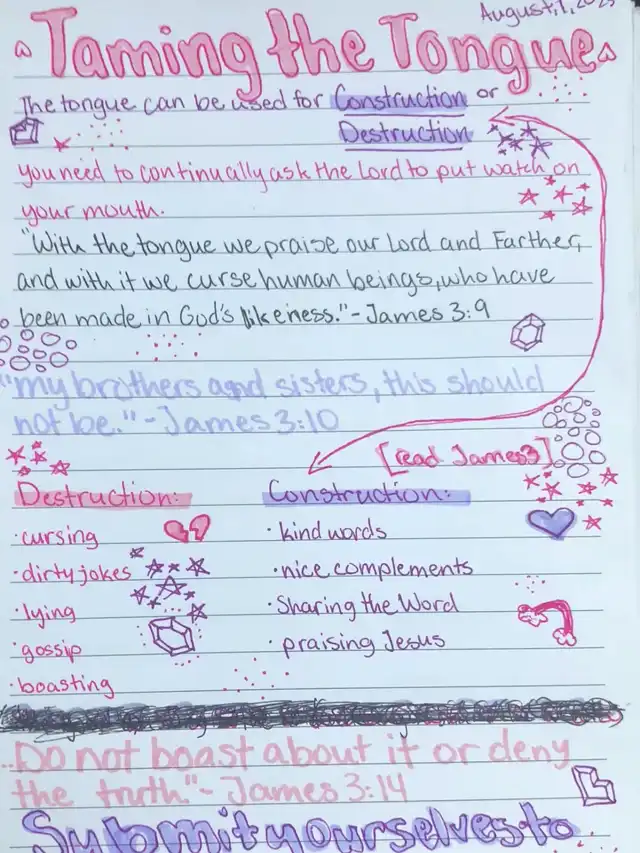 August, 1, 2025
Taming the Tongue
The tongue can be used for Construction or
Destruction
you need to continually ask the Lord to put watch on
your mouth.
"With the tongue we praise our Lord and Farther,
and with it we curse human beings, who have
been made in God's likeness." - James 3:9
"my brothers and sisters, this should
not be." - James 3:10
[read James 3]
Destruction:
· cursing
· dirty jokes
· lying
· gossip
· boasting
Construction:
· kind words
· nice complements
· Sharing the Word
· praising Jesus
..Do not boast about it or deny
the truth." - James 3:14
Submit yourselves to